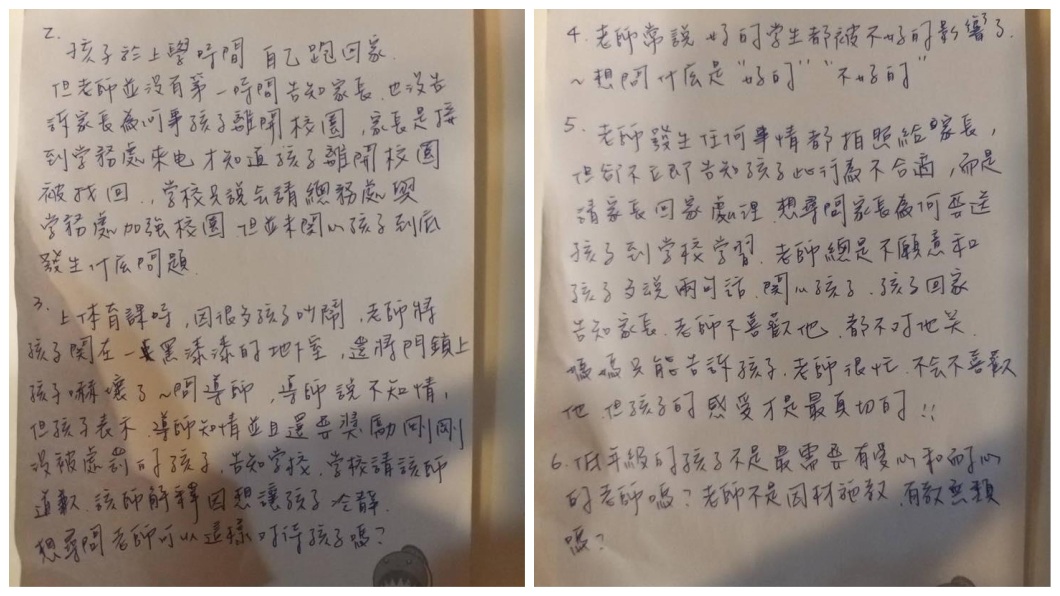 2.
孩子於上學時間 自己跑回家.
但老師並沒有第一時間告知家長.也沒告
訴家長為何事孩子離開校園,家長是接
到學務處來电才知道孩子離開校園
被找回.,学校只說会請總務處與
学務處加強校園 但並未関心孩子到底
發生什庅問題.
3. 上体育課時,因很多孩子吵鬧,老師將
孩子関在一黑漆漆的地下室,還將門鎖上
孩子嚇壞了~問導師,導師說不知情,
但孩子表示.導師知情並且還要獎勵剛剛
沒被處罰的孩子,告知学校.学校請該師
道歉.該師解釋因想讓孩子冷靜.
想尋問老師可以這樣对待孩子嗎?
4.老師常說 好的学生都被不好的影響了.
~想問什庅是"好的" "不好的"
5. 老師發生任何事情都拍照給家長,
但卻不立即告知孩子此行為不合適,而是
請家長回家處理.想尋問家長為何要送
孩子到学校学習.老師總是不願意和
孩子多說兩句話.関心孩子.孩子回家
告知家長.老師不喜歡他.都不对他笑.
媽媽只能告訴孩子.老師很忙.不会不喜歡
他.但孩子的感受才是最真切的!!
6.低年級的孩子不是最需要有愛心和耐心
的老師嗎?老師不是因材施教.有教無類
嗎?